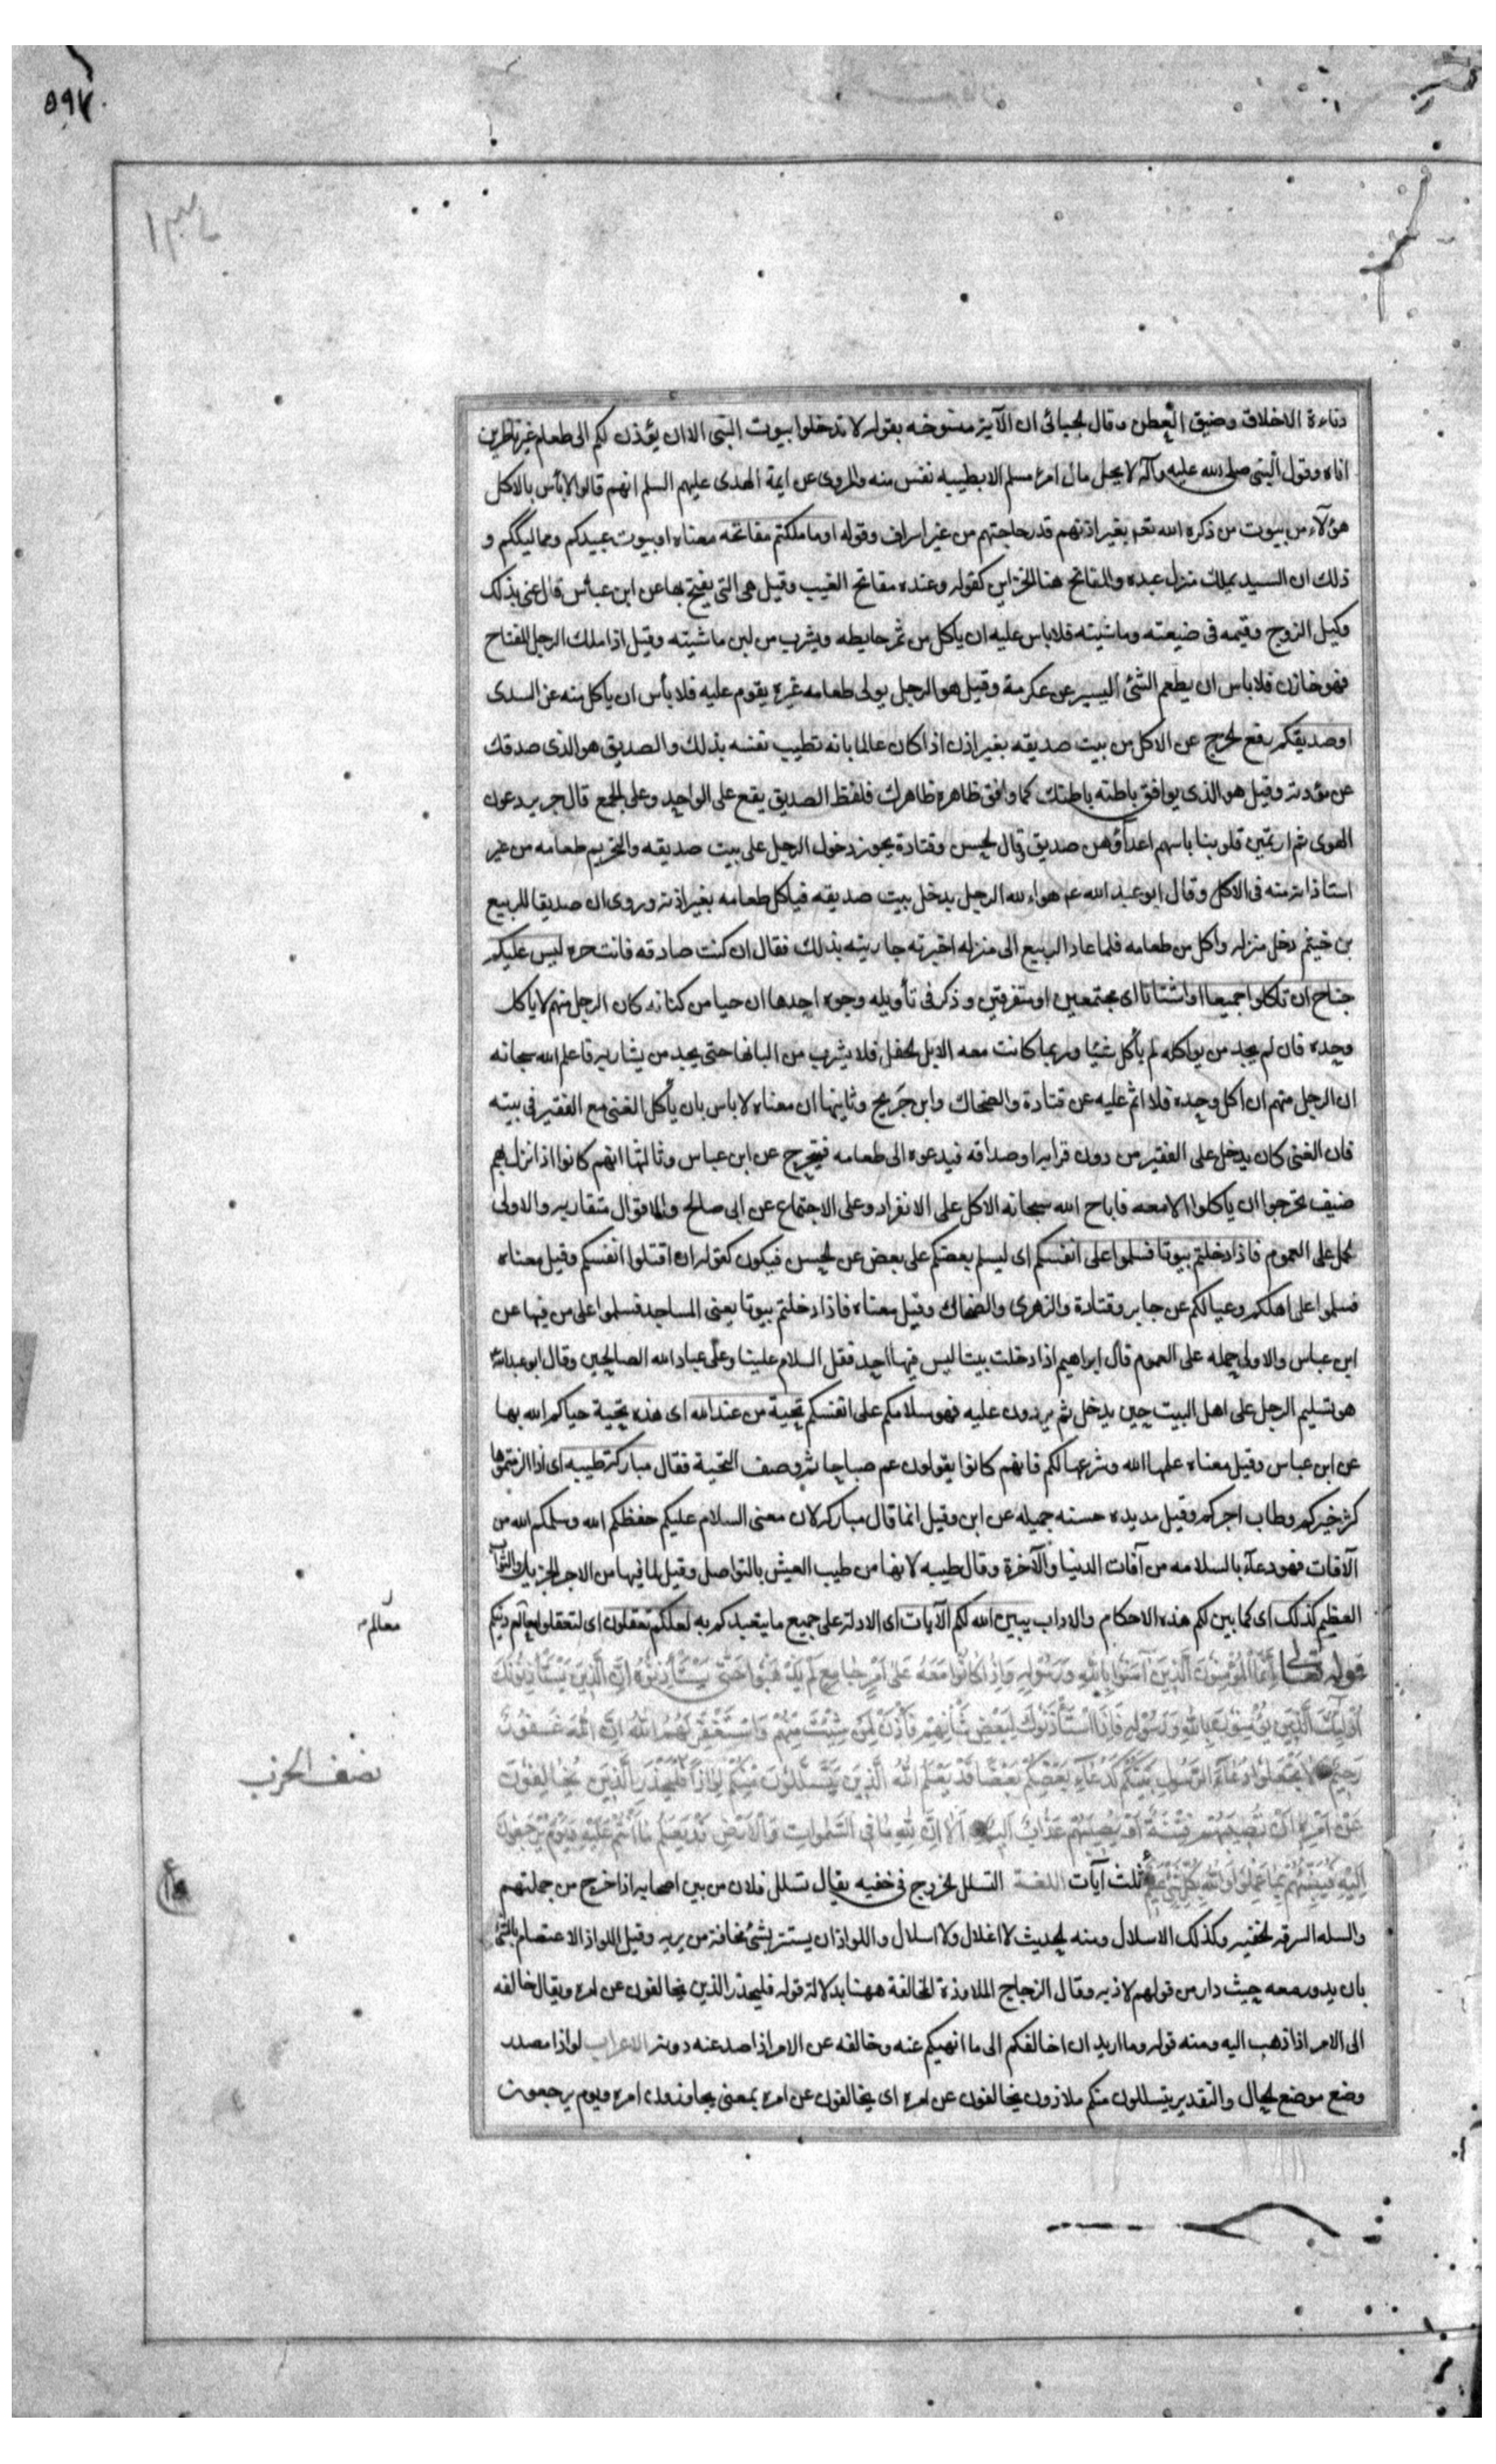 ٥٩٧
١٣٤
دناءة الاخلاق وضيق العطن وقال الجبائى ان الآية منسوخه بقوله لا تدخلوا بيوت النبى الا ان يؤذن لكم الى طعام غير ناظرين
اناه وقول النبى صلى الله عليه وآله لا يحل مال امرء مسلم الا بطيبه نفس منه والمروى عن ايمة الهدى عليهم السلم انهم قالوا لا بأس بالاكل
هؤلآء من بيوت من ذكره الله تعه بغير اذنهم قدر حاجتهم من غير اسراف وقوله او ما ملكتم مفاتحه معناه او بيوت عبيدكم ومماليككم و
ذلك ان السيد يملك منزل عبده والمفاتح هنا الخزاين كقوله وعنده مفاتح الغيب وقيل هى التى يفتح بها عن ابن عباس قال عنى بذلك
وكيل الزوج وقيمه فى ضيعته وماشيته فلا باس عليه ان يأكل من ثمر حايطه ويشرب من لبن ماشيته وقيل اذا ملك الرجل المفتاح
فهو خازن فلا باس ان يطعم الشئ اليسير عن عكرمة وقيل هو الرجل يولى طعامه غيره يقوم عليه فلا بأس ان يأكل منه عن السدى
او صديقكم رفع الحرج عن الاكل من بيت صديقه بغير اذن اذا كان عالما بانه تطيب نفسه بذلك والصديق هو الذى صدقك
عن مؤدته وقيل هو الذى يوافق باطنه باطنك كما وافق ظاهره ظاهرك فلفظ الصديق يقع على الواحد وعلى الجمع قال جرير دعون
الهوى ثم ارتمين قلوبنا باسهم اعدآء وهن صديق وقال الحسن وقتادة يجوز دخول الرجل على بيت صديقه والتحرم بطعامه من غير
استاذانه منه فى الاكل وقال ابو عبد الله عم هو اه لله الرجل يدخل بيت صديقه فياكل طعامه بغير اذنه وروى ان صديقا للربيع
بن خيثم دخل منزله واكل من طعامه فلما عاد الربيع الى منزله اخبرته جاريته بذلك فقال ان كنت صادقه فانت حره ليس عليكم
جناح ان تأكلوا جميعا او اشتاتا اى مجتمعين او متفرقين وذكر فى تأويله وجوه احدها ان حيا من كنانه كان الرجل منهم لا ياكل
وحده فان لم يجد من يواكله لم يأكل شئيا وربما كانت معه الابل الحفل فلا يشرب من البانها حتى يجد من يشاربه فاعلم الله سبحانه
ان الرجل منهم ان اكل وحده فلا اثم عليه عن قتادة والضحاك وابن جريج وثانيها ان معناه لا باس بان يأكل الغنى مع الفقير فى بيته
فان الغنى كان يدخل على الفقير من دون قرابه او صداقه فيدعوه الى طعامه فيتحرج عن ابن عباس وثالثها انهم كانوا اذا نزل بهم
ضيف تحرجوا ان ياكلوا الا معه فاباح الله سبحانه الاكل على الانفراد وعلى الاجتماع عن ابى صالح والاقوال متقاربه والاولى
الحمل على العموم فاذا دخلتم بيوتا فسلموا على انفسكم اى ليسلم بعضكم على بعض عن الحسن فيكون كقوله ان اقتلوا انفسكم وقيل معناه
فسلموا على اهلكم وعيالكم عن جابر وقتادة والزهرى والضحاك وقيل معناه فاذا دخلتم بيوتا يعنى المساجد فسلموا على من فيها عن
ابن عباس والاولى حمله على العموم قال ابراهيم اذا دخلت بيتا ليس فيها احد فقل السلام علينا وعلى عباد الله الصالحين وقال ابو عبد الله
هو تسليم الرجل على اهل البيت حين يدخل ثم يردون عليه فهو سلامكم على انفسكم تحية من عند الله اى هذه تحية حياكم الله بها
عن ابن عباس وقيل معناه علمها الله وشرعها لكم فانهم كانوا يقولون عم صباحا ثم وصف التحية فقال مباركة طيبه اى اذا الزمتموها
كثر خيركم وطاب اجركم وقيل مديده حسنه جميله عن ابن وقيل انما قال مباركه لان معنى السلام عليكم حفظكم الله وسلمكم الله من
الآفات فهو دعآء بالسلامه من آفات الدنيا والآخرة وقال طيبه لانها من طيب العيش بالتواصل وقيل لما فيها من الاجر الجزيل والثواب
العظيم كذلك اى كما بين لكم هذه الاحكام والاداب يبين الله لكم الآيات اى الادلة على جميع ما يتعبدكم به لعلكم تعقلون اى لتعقلوا معالم دينكم
معالم
قوله تعالى إِنَّمَا الْمُؤْمِنُونَ الَّذِينَ آمَنُوا بِاللهِ وَرَسُولِهِ وَإِذَا كَانُوا مَعَهُ عَلَى أَمْرٍ جَامِعٍ لَمْ يَذْهَبُوا حَتَّى يَسْتَأْذِنُوهُ إِنَّ الَّذِينَ يَسْتَأْذِنُونَكَ
أُولَئِكَ الَّذِينَ يُؤْمِنُونَ بِاللهِ وَرَسُولِهِ فَإِذَا اسْتَأْذَنُوكَ لِبَعْضِ شَأْنِهِمْ فَأْذَنْ لِمَنْ شِئْتَ مِنْهُمْ وَاسْتَغْفِرْ لَهُمُ اللهَ إِنَّ اللهَ غَفُورٌ
رَحِيمٌ لَا تَجْعَلُوا دُعَاءَ الرَّسُولِ بَيْنَكُمْ كَدُعَاءِ بَعْضِكُمْ بَعْضًا قَدْ يَعْلَمُ اللهُ الَّذِينَ يَتَسَلَّلُونَ مِنْكُمْ لِوَاذًا فَلْيَحْذَرِ الَّذِينَ يُخَالِفُونَ
نصف الحزب
عَنْ أَمْرِهِ أَنْ تُصِيبَهُمْ فِتْنَةٌ أَوْ يُصِيبَهُمْ عَذَابٌ أَلِيمٌ أَلَا إِنَّ لِلهِ مَا فِي السَّمَوَاتِ وَالْأَرْضِ قَدْ يَعْلَمُ مَا أَنْتُمْ عَلَيْهِ وَيَوْمَ يُرْجَعُونَ
إِلَيْهِ فَيُنَبِّئُهُمْ بِمَا عَمِلُوا وَاللهُ بِكُلِّ شَيْءٍ عَلِيمٌ ثلث آيات اللغة التسلل الخروج فى خفيه يقال تسلل فلان من بين اصحابه اذا خرج من جملتهم
والسله السرقه الخفيه وكذلك الاسلال ومنه الحديث لا اغلال ولا اسلال واللواذ ان يستتر بشئ مخافة من يريه وقيل اللواذ الاعتصام بالشئ
بان يدور معه حيث دار من قولهم لاذ به وقال الزجاج الملاوذة المخالفة ههنا بدلالة قوله فليحذر الذين يخالفون عن امره ويقال خالفه
الى الامر اذا ذهب اليه ومنه قوله وما اريد ان اخالفكم الى ما انهيكم عنه وخالفه عن الامر اذا صد عنه دونه الاعراب لواذا مصدر
وضع موضع الحال والتقدير يتسللون منكم ملاوذون يخالفون عن امره اى يخالفون عن امره بمعنى يجاوزون امره ويوم يرجعون